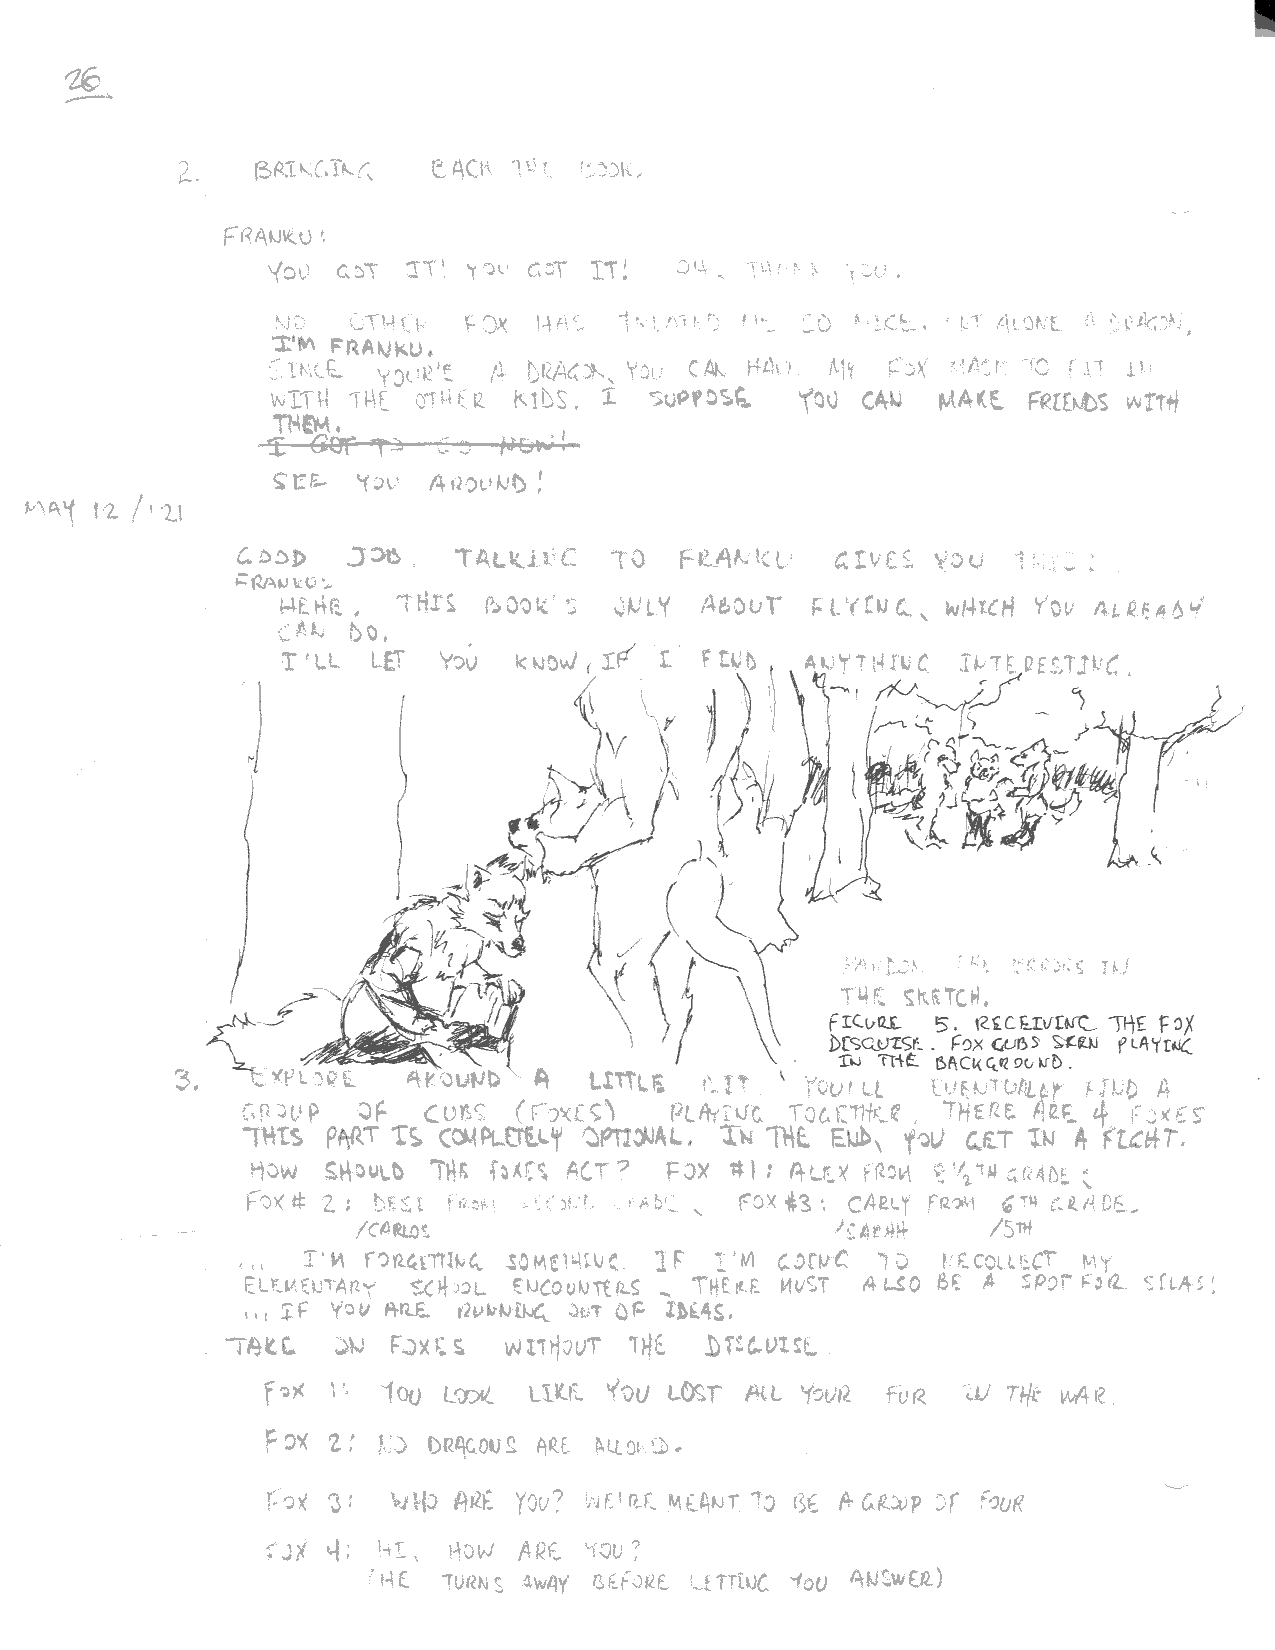 26
2. BRINGING BACK THE BOOK.
FRANKU:
YOU GOT IT! YOU GOT IT! OH, THANK YOU.
NO OTHER FOX HAS TREATED ME SO NICE. LET ALONE A DRAGON,
I'M FRANKU.
SINCE YOUR'E A DRAGON, YOU CAN HAVE MY FOX MASK TO FIT IN
WITH THE OTHER KIDS. I SUPPOSE YOU CAN MAKE FRIENDS WITH
THEM.
I GOT TO GO NOW!
SEE YOU AROUND!
MAY 12/'21
GOOD JOB. TALKING TO FRANKU GIVES YOU THIS:
FRANKU:
HEHE. THIS BOOK'S ONLY ABOUT FLYING, WHICH YOU ALREADY
CAN DO.
I'LL LET YOU KNOW, IF I FIND ANYTHING INTERESTING.
PARDON THE ERRORS IN
THE SKETCH.
FIGURE 5. RECEIVING THE FOX
DISGUISE. FOX CUBS SEEN PLAYING
IN THE BACKGROUND.
3. EXPLORE AROUND A LITTLE BIT. YOU'LL EVENTUALLY FIND A
GROUP OF CUBS (FOXES) PLAYING TOGETHER. THERE ARE 4 FOXES
THIS PART IS COMPLETELY OPTIONAL. IN THE END, YOU GET IN A FIGHT.
HOW SHOULD THE FOXES ACT? FOX #1: ALEX FROM 2 1/2TH GRADE;
FOX # 2: DESI FROM SECOND GRADE, FOX #3: CARLY FROM 6TH GRADE.
/CARLOS /SARAH /5TH
... I'M FORGETTING SOMETHING. IF I'M GOING TO RECOLLECT MY
ELEMENTARY SCHOOL ENCOUNTERS - THERE MUST ALSO BE A SPOT FOR SILAS!
... IF YOU ARE RUNNING OUT OF IDEAS.
TAKE ON FOXES WITHOUT THE DISGUISE
FOX 1: YOU LOOK LIKE YOU LOST ALL YOUR FUR IN THE WAR.
FOX 2: NO DRAGONS ARE ALLOWED.
FOX 3: WHO ARE YOU? WE'RE MEANT TO BE A GROUP OF FOUR
FOX 4: HI, HOW ARE YOU?
(HE TURNS AWAY BEFORE LETTING YOU ANSWER)